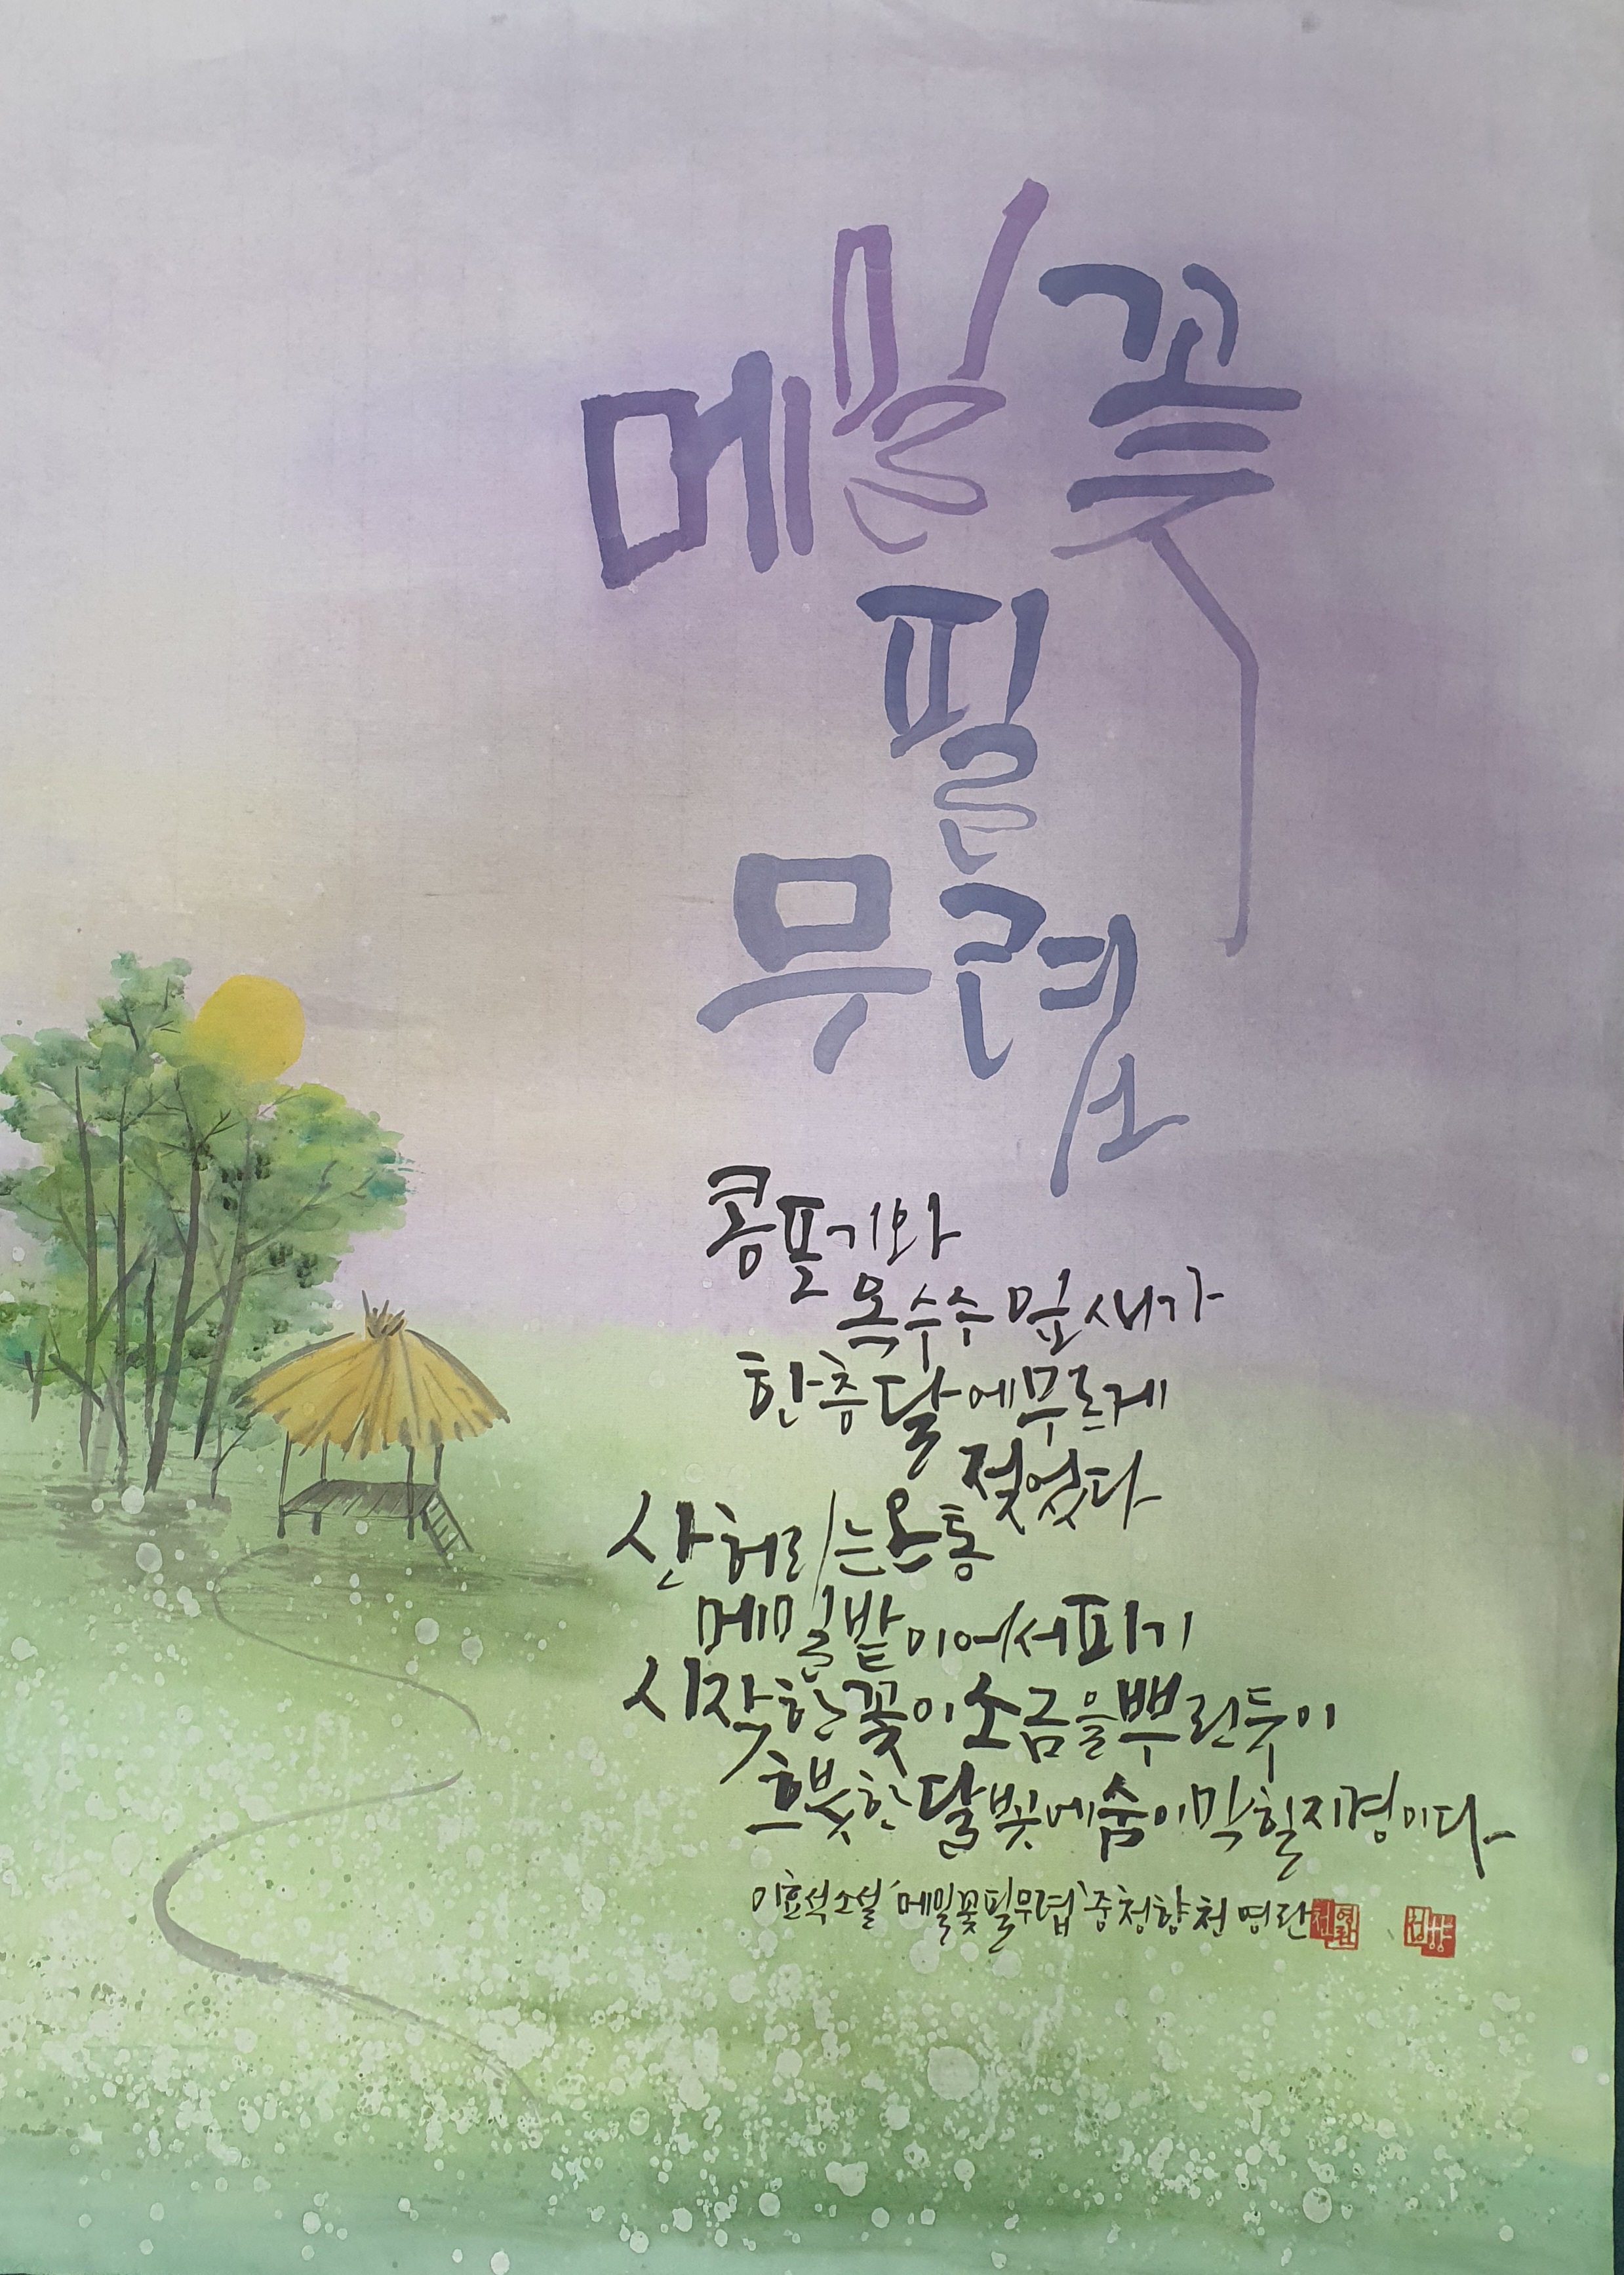 메밀꽃
필
무렵
콩포기와
옥수수 잎새가
한층 달에 무르게
젖었다
산허리는 온통
메밀밭이어서 피기
시작한 꽃이 소금을 뿌린 듯이
흐뭇한 달빛에 숨이 막힐 지경이다
이효석 소설 '메밀꽃 필 무렵' 중 청향 천영란
천영란
청향